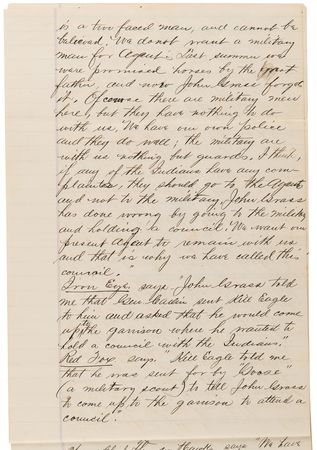 is a two faced man, and cannot be
believed. We do not want a military
man for Agent. Last summer we
were promised horses by the great
father, and now John Grass forgets
it. Of course there are military men
here, but they have nothing to do
with us. We have our own police
and they do well; the military are
with us nothing but guards. I think,
if any of the Indians have any com-
plaints, they should go to the Agent
and not to the military. John Grass
has done wrong by going to the military
and holding a council. We want our
present Agent to remain with us
and that is why we have called this
council."
Iron Eye, says "John Grass told
me that Gen. sent Kill Eagle
to him and asked that he would come
up to the garrison where he wanted to
hold a council with the Indians."
Red Fox, says, "Kill Eagle told me
that he was sent for by "Goose"
(a military scout) to tell John Grass
to come up to the garrison to attend a
council".
says "We have